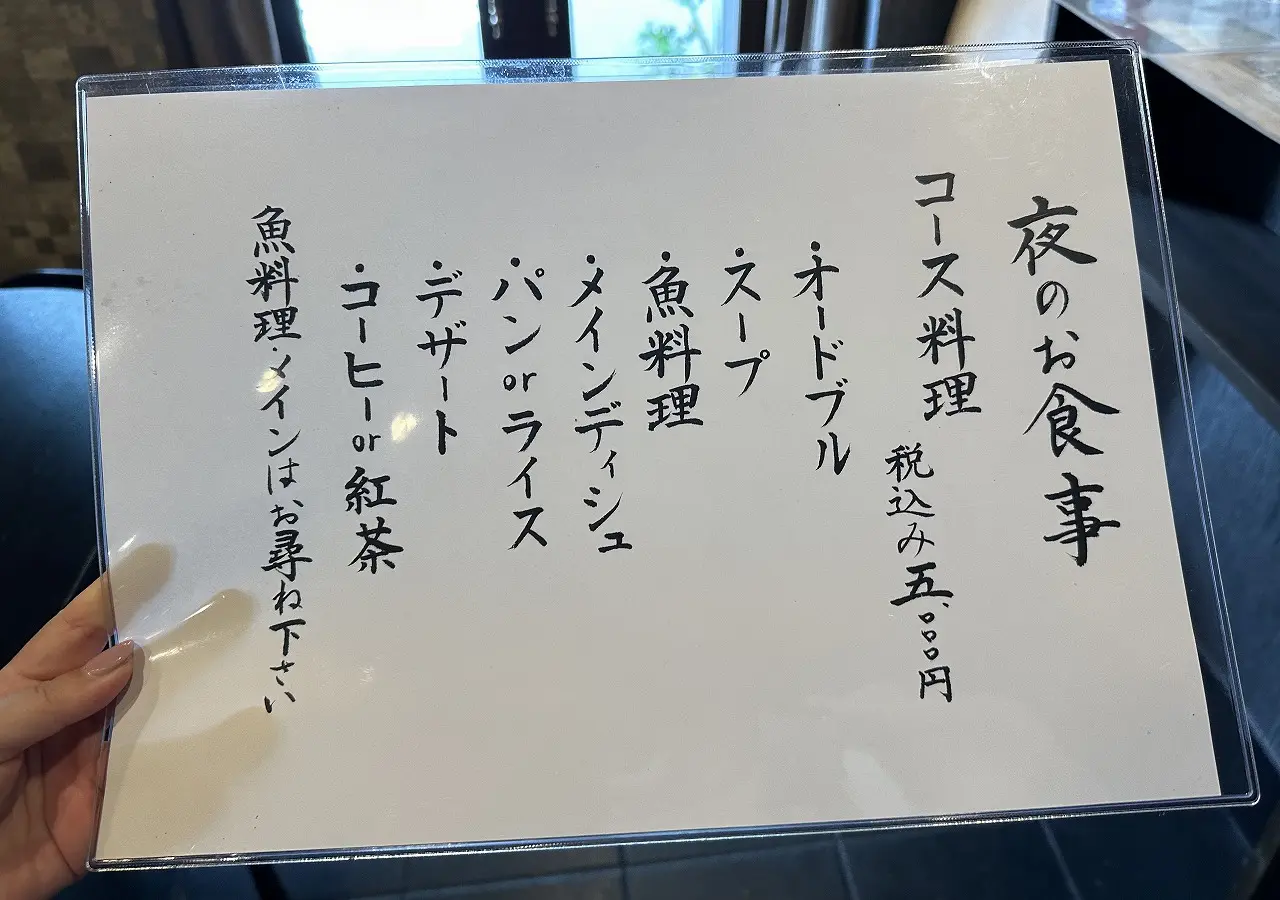 夜のお食事
コース料理 税込み五、〇〇〇円
・オードブル
・スープ
・魚料理
・メインディシュ
・パンorライス
・デザート
・コーヒーor紅茶
魚料理・メインはお尋ね下さい